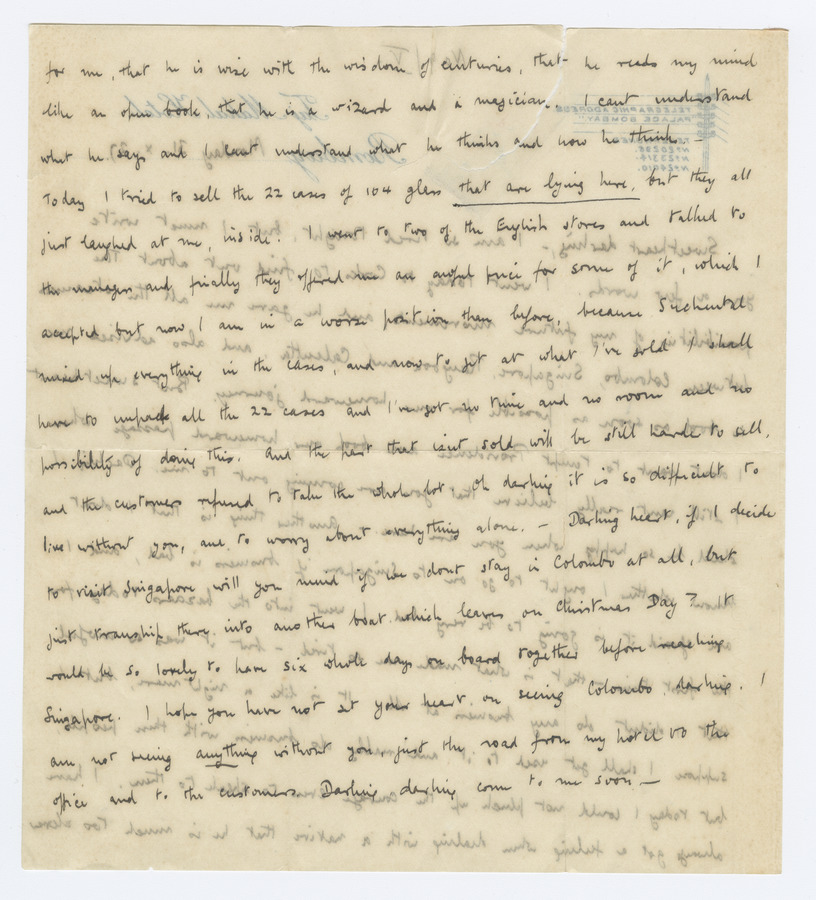 for me, that he is wise with the wisdom of centuries, that he reads my mind
like an open book, that he is a wizard and a magician. I cant understand
what he says and I cant understand what he thinks and how he thinks —
Today I tried to sell the 22 cases of 104 glass that are lying here, but they all
just laughed at me, inside. I went to two of the English stores and talked to
the managers and finally they offered me an awful price for some of it, which I
accepted but now I am in a worse position than before, because Suchental
mixed up everything in the cases, and now to get at what I've sold I shall
have to unpack all the 22 cases and I've got no time and no room and no
possibility of doing this. And the part that isnt sold will be still harder to sell,
and the customers refused to take the whole lot. Oh darling it is so difficult to
live without you, and to worry about everything alone. — Darling heart, if I decide
to visit Singapore will you mind if we dont stay in Colombo at all, but
just tranship there into another boat which leaves on Christmas Day? It
would be so lovely to have six whole days on board together before reaching
Singapore. I hope you have not set your heart on seeing Colombo, darling. I
am not seeing anything without you, just the road from my hotel to the
office and to the customers. Darling, darling come to me soon —